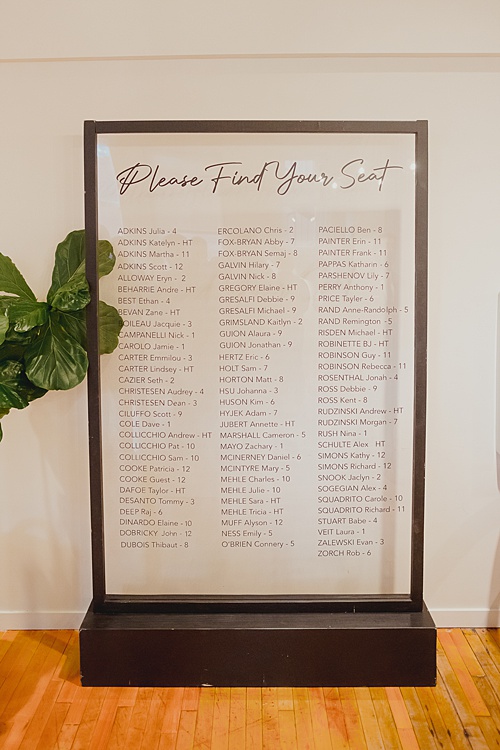 Please Find Your Seat
ADKINS Julia - 4
ADKINS Katelyn - HT
ADKINS Martha - 11
ADKINS Scott - 12
ALLOWAY Eryn - 2
BEHARRIE Andre - HT
BEST Ethan - 4
BEVAN Zane - HT
BOILEAU Jacquie - 3
CAMPANELLI Nick - 1
CAROLO Jamie - 1
CARTER Emmilou - 3
CARTER Lindsey - HT
CAZIER Seth - 2
CHRISTESEN Audrey - 4
CHRISTESEN Dean - 3
CILUFFO Scott - 9
COLE Dave - 1
COLLICCHIO Andrew - HT
COLLICCHIO Pat - 10
COLLICCHIO Sam - 10
COOKE Patricia - 12
COOKE Guest - 12
DAFOE Taylor - HT
DESANTO Tommy - 3
DEEP Raj - 6
DINARDO Elaine - 10
DOBRICKY John - 12
DUBOIS Thibaut - 8
ERCOLANO Chris - 2
FOX-BRYAN Abby - 7
FOX-BRYAN Semaj - 8
GALVIN Hilary - 7
GALVIN Nick - 8
GREGORY Elaine - HT
GRESALFI Debbie - 9
GRESALFI Michael - 9
GRIMSLAND Kaitlyn - 2
GUION Alaura - 9
GUION Jonathan - 9
HERTZ Eric - 6
HOLT Sam - 7
HORTON Matt - 8
HSU Johanna - 3
HUSON Kim - 6
HYJEK Adam - 7
JUBERT Annette - HT
MARSHALL Cameron - 5
MAYO Zachary - 1
MCINERNEY Daniel - 6
MCINTYRE Mary - 5
MEHLE Charles - 10
MEHLE Julie - 10
MEHLE Sara - HT
MEHLE Tricia - HT
MUFF Alyson - 12
NESS Emily - 5
O'BRIEN Connery - 5
PACIELLO Ben - 8
PAINTER Erin - 11
PAINTER Frank - 11
PAPPAS Katharin - 6
PARSHENOV Lily - 7
PERRY Anthony - 1
PRICE Tayler - 6
RAND Anne-Randolph - 5
RAND Remington - 5
RISDEN Michael - HT
ROBINETTE BJ - HT
ROBINSON Guy - 11
ROBINSON Rebecca - 11
ROSENTHAL Jonah - 4
ROSS Debbie - 9
ROSS Kent - 8
RUDZINSKI Andrew - HT
RUDZINSKI Morgan - 7
RUSH Nina - 1
SCHULTE Alex HT
SIMONS Kathy - 12
SIMONS Richard - 12
SNOOK Jaclyn - 2
SOGEGIAN Alex - 4
SQUADRITO Carole - 10
SQUADRITO Richard - 11
STUART Babe - 4
VEIT Laura - 1
ZALEWSKI Evan - 3
ZORCH Rob - 6